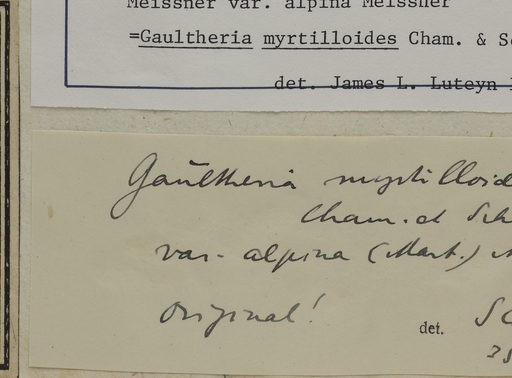 Meissner var. alpina Meissner
=Gaultheria myrtilloides Cham. & Sc
det. James L. Luteyn
Gaultheria myrtilloid
Cham. et Sch
var. alpina (Mart.)
Original!
det. Sc